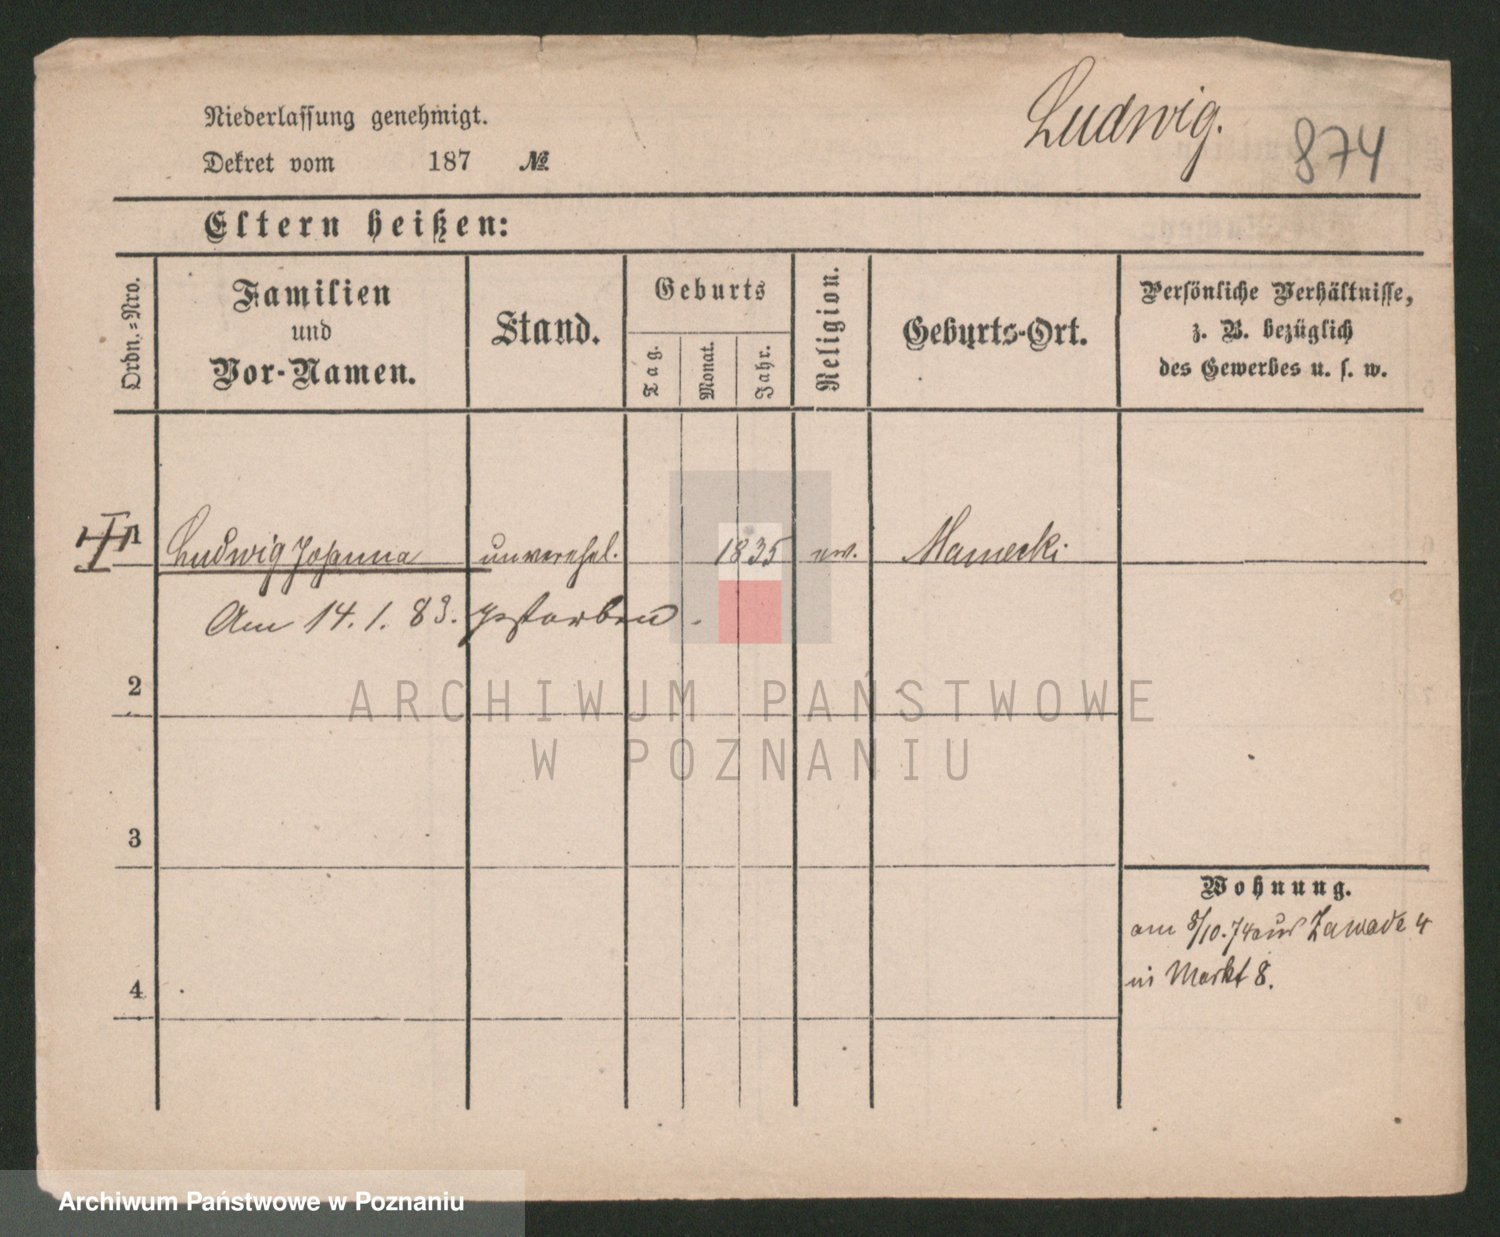 Niederlassung genehmigt.
Dekret vom 187 №
Ludwig.
874
Eltern heißen:
Ordn.=Nro.
Familien
und
Vor-Namen.
Stand.
Geburts
Tag.
Monat.
Jahr.
Religion.
Geburts-Ort.
Persönliche Verhältnisse,
z. B. bezüglich
des Gewerbes u. s. w.
1 Ludwig Johanna unverehel. 1835 ev.
Am 14.1.83. gestorben.
2
ARCHIWUM PAŃSTWOWE
W POZNANIU
3
Wohnung.
am 8/10.74 aus Zawade 4
in Markt 8.
4
Archiwum Państwowe w Poznaniu